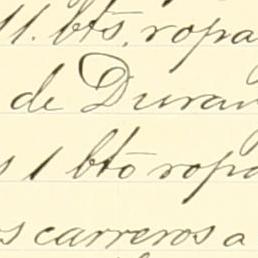 11. bts. ropa
de Duran
s 1 bto ropa
s carreros a